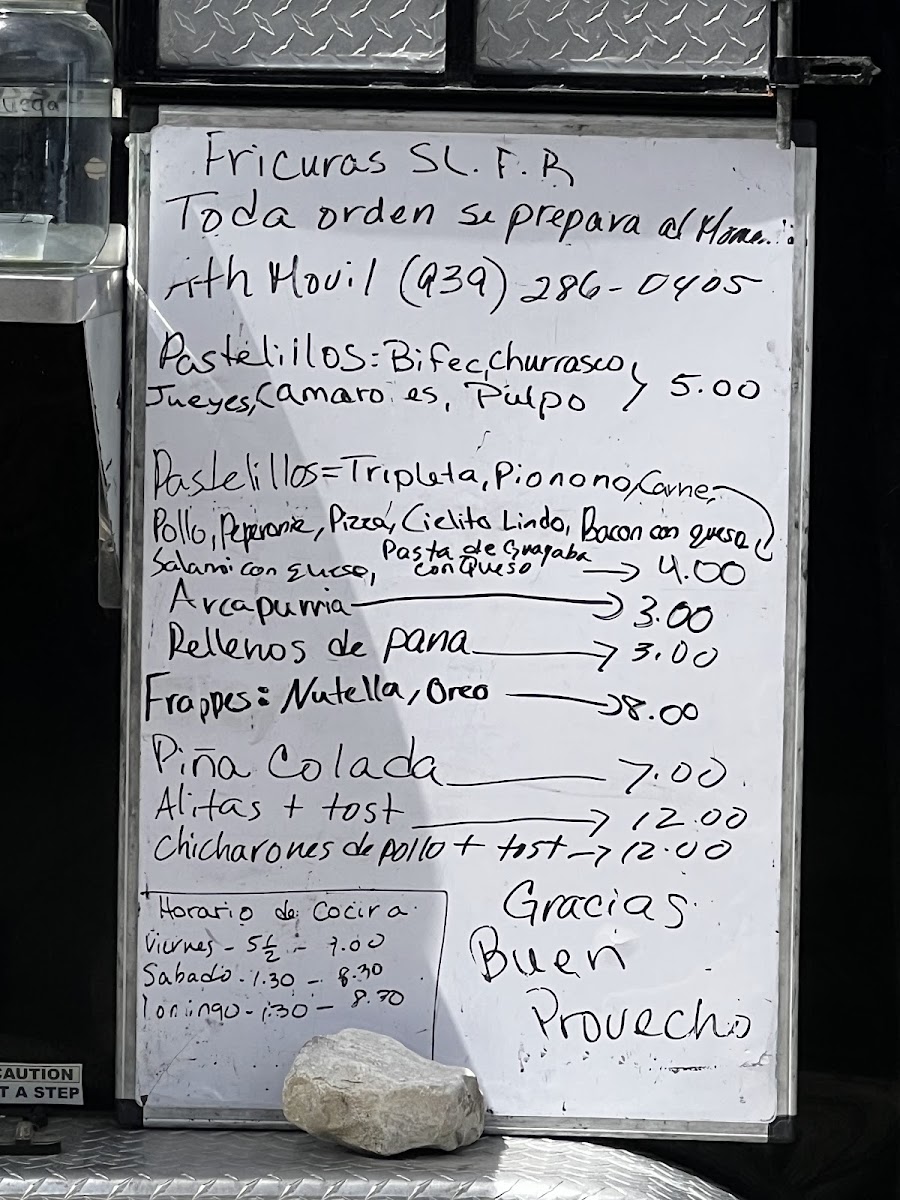 uega
Fricuras SL. F. R
Toda orden se prepara al Mome
Ath Movil (939) 286-0405
Pastelillos: Bifec, churrasco,
Jueyes, Camaro es, Pulpo 5.00
Pastelillos = Tripleta, Pionono, Carne,
Pollo, Peperonie, Pizza, Cielito Lindo, Bacon con queso
Salami con queso, Pasta de Guayaba con Queso → 4.00
Arcapurria → 3.00
Rellenos de pana → 3.00
Frappes: Nutella, Oreo → 8.00
Piña Colada — 7.00
Alitas + tost → 12.00
Chicharones de pollo + tost → 12.00
Horario de Cocira
Viernes - 5½ - 9.00
Sabado - 1.30 - 8.30
omingo - 1:30 - 8.30
Gracias
Buen
Provecho
CAUTION
T A STEP